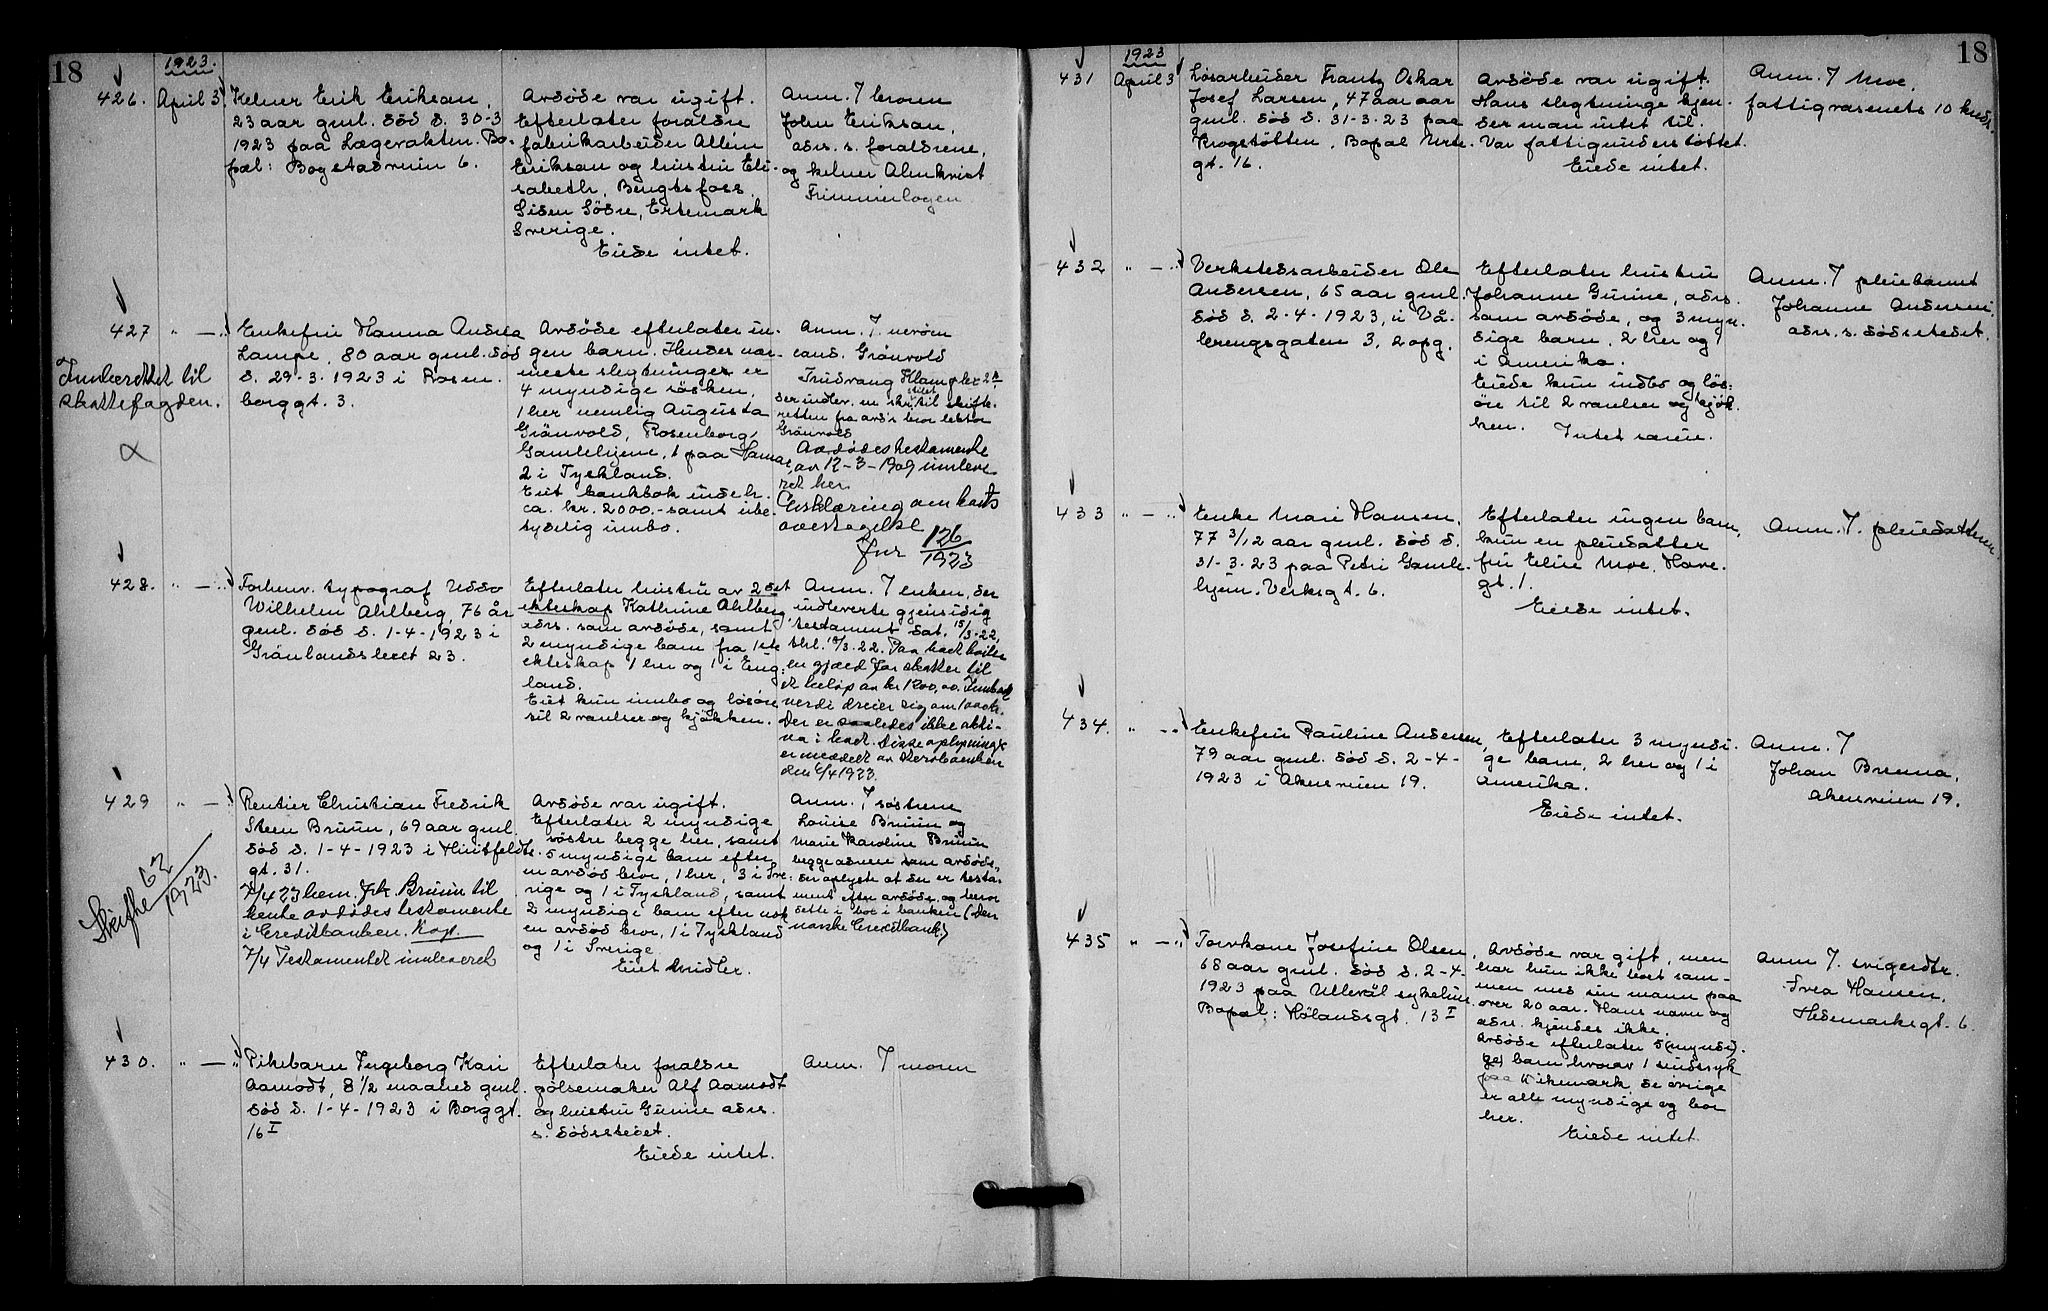 18
1923.
426. April 3
Kelner Erik Eriksan,
23 aar gml. död d. 30-3
1923 paa Lægevakten. Bo-
pæl: Bogstadveien 6.
Avdöde var ugift.
Efterlater foraldre
fabrikarbeider
Eriksan og hustru Eli-
sabeth, Bengtsfoss
Södre, Ertemark
Sverige.
Eiede intet.
Anm. 7 broren
John Eriksan,
adr. s. foraldrene,
og kelner Almkvist
Frimurerlogen
427 " — "
Innberettet til
skattefogden.
Enkefru Hanna Andrea
Lampe, 80 aar gml. död
d. 29-3. 1923 i Rosen-
borggt. 3.
Avdöde efterlater in-
gen barn. Hendes nær-
meste slegtninger er
4 myndige sösken,
1 her nemlig Augusta
Grönvold, Rosenborg
Gamlehjem, 1 paa Hamar,
2 i Tyskland.
Eiet bankbok indeh.
ca. kr. 2000.- samt ube-
tydelig innbo.
Anm. 7. nevöen
cand. Grönvold
Trudvang
der indlev. en skr. til skifte-
retten fra avd's bror lektor
Grönvold
Avdödes testamente
av 12-3-1909 innleve-
ret her.
Erklæring om boets
overtagelse
Jnr 126/1923
428. " — "
Forhenv. typograf Uddo
Wilhelm Ahlberg, 76 år
gml. död d. 1-4-1923 i
Grönlandsleret 23.
Efterlater hustru av 2det
ekteskap Kathrine Ahlberg,
adr. som avdöde, samt
2 myndige barn fra 1ste
ekteskap 1 her og 1 i Eng-
land.
Eiet kun innbo og lösöre
til 2 værelser og kjökken.
Anm. 7 enken, der
indleverte gjensidig
testament dat. 15/3-22,
/3.22. Paa boet hviler
en gjæld for skatter til
et belöp av kr 1200,00. Innboets
verdi dreier sig om
Der er saaledes ikke akti-
va i boet. Disse oplysninger
er meddelt av
den 6/4 1923.
429 " — "
Skifte 62/1923.
Rentier Christian Fredrik
Steen Bruun, 69 aar gml.
död d. 1-4-1923 i Huitfeldts-
gt. 31.
7/4 23 hem. frk. Bruun til
hente avdödes testamente
i Creditbanken. Kop.
7/4 Testamentet innleveret
Avdöde var ugift.
Efterlater 2 myndige
söstre begge her, samt
5 myndige barn efter
en avdöd bror, 1 her, 3 i Sve-
rige og 1 i Tyskland, samt
2 myndige barn efter nok
en avdöd bror, 1 i Tyskland
og 1 i Sverige
Eiet midler.
Anm. 7 söstrene
Louise Bruun og
Marie Karoline Bruun
begge adresse som avdöde,
der oplyste at der er testa-
ment efter avdöde, og beror
dette i box i banken (Den
norske Creditbank)
430. " — "
Pikebarn Ingeborg Kari
Aamodt, 8 1/2 maaned gml.
död d. 1-4-1923 i Borggt.
16 I
Efterlater foraldre
pölsemaker Alf Aamodt
og hustru Gunine adr.
s. dödsstedet.
Eiede intet.
Anm. 7 moren
18
1923
431 April 3
Lösarbeider Frantz Oskar
Josef Larsen, 47 aar aar
gml. död d. 31-3-23 paa
Krogstötten. Bopæl Urte-
gt. 16.
Avdöde var ugift.
Hans slegtninge kjen-
der man intet til.
Var fattigunderstöttet.
Eiede intet.
Anm. 7 Moe,
fattigvæsenets 10 kreds.
432 " — "
Verkstedsarbeider Ole
Andersen, 65 aar gml.
död d. 2-4-1923, i Vå-
lerengsgaten 3, 2 opg.
Efterlater hustru
Johanne Gurine, adr.
som avdöde, og 3 myn-
dige barn, 2 her og 1
i Amerika.
Eiede kun indbo og lös-
öre til 2 værelser og kjök-
ken. Intet særeie.
Anm. 7 pleiebarnet
Johanne Andersen,
adr. s. dödsstedet.
433 " — "
Enke Mari Hansen,
77 3/12 aar gml. död d.
31-3-23 paa Petri Gamle-
hjem. Verksgt. 6.
Efterlater ingen barn,
kun en pleiedatter
fru Elise Moe, Have-
gt. 1.
Eiede intet.
Anm. 7. pleiedatteren
434. " — "
Enkefru Pauline Andersen,
79 aar gml. död d. 2-4-
1923 i Akersveien 19.
Efterlater 3 myndi-
ge barn, 2 her og 1 i
Amerika.
Eiede intet.
Anm. 7
Johan Brenna,
Akersveien 19.
435 " — "
Torvkone Josefine Olsen,
68 aar gml. död d. 2-4-
1923 paa Ullevål sykehus.
Bopæl: Hölandsgt. 13 I
Avdöde var gift, men
har hun ikke boet sam-
men med sin mann paa
over 20 aar. Hans navn og
adr. kjendes ikke.
Avdöde efterlater 5 (myndi-
ge) barn hvorav 1 sindssyk
paa Dikemark de övrige
er alle myndige og bor
her.
Eiede intet.
Anm 7. svigerdtr.
Svea Hansen,
Hedemarksgt. 6.